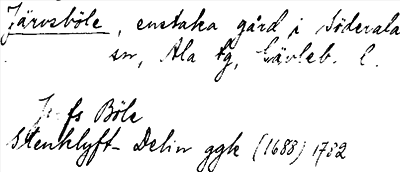 Järvsböle, enstaka gård i Söderala
sn, Ala tg, Gävleb. l.
Böle
Stenklyft- Delin ggk (1688) 1782